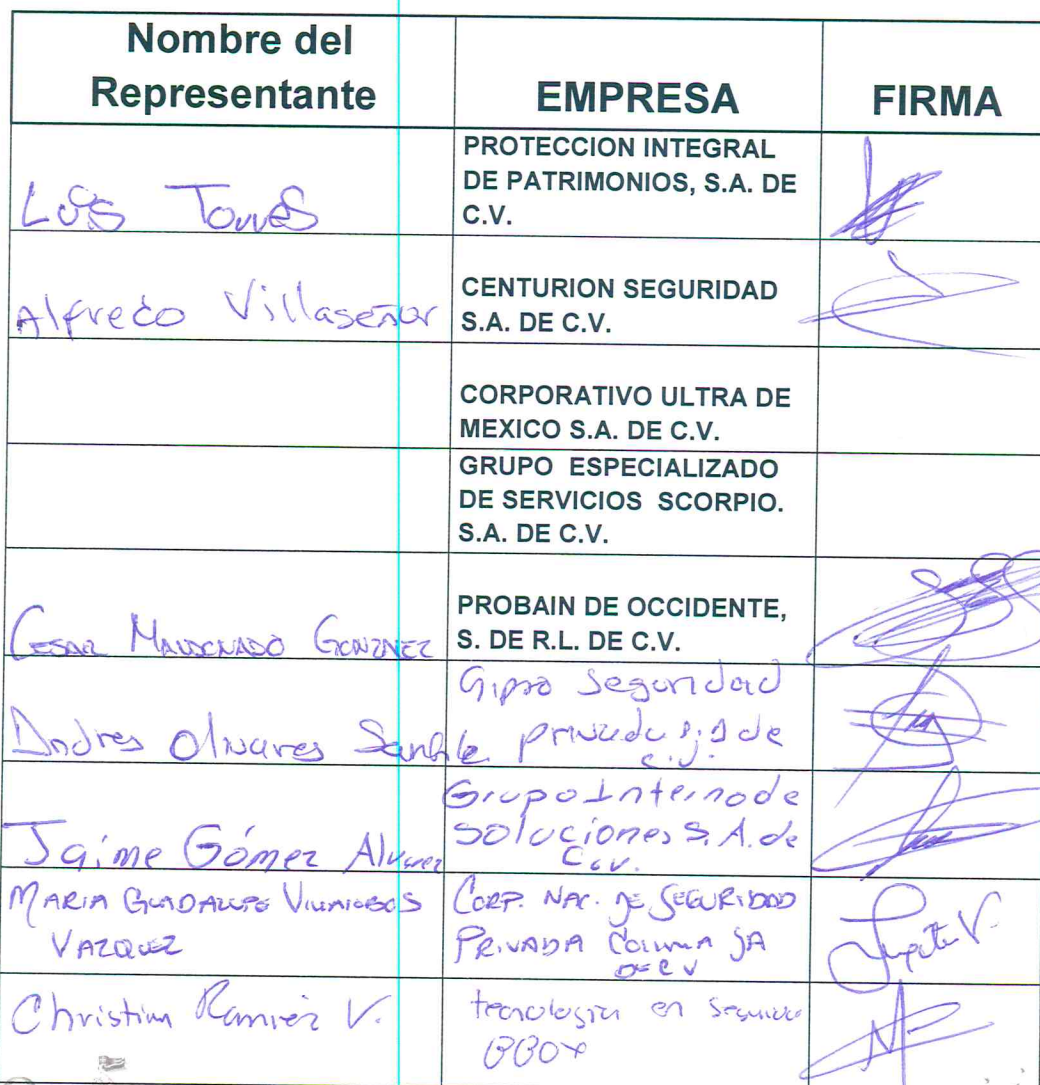 Nombre del
Representante
EMPRESA
FIRMA
Luis Torres
PROTECCION INTEGRAL
DE PATRIMONIOS, S.A. DE
C.V.
Alfredo Villaseñor
CENTURION SEGURIDAD
S.A. DE C.V.
CORPORATIVO ULTRA DE
MEXICO S.A. DE C.V.
GRUPO ESPECIALIZADO
DE SERVICIOS SCORPIO.
S.A. DE C.V.
CESAR MALDONADO GONZALEZ
PROBAIN DE OCCIDENTE,
S. DE R.L. DE C.V.
Andres Olivares
Gipsa Seguridad
privada S.A de
C.V.
Jaime Gómez Alvarez
Grupo Interno de
Soluciones S.A. de
C.V.
MARIA GUADALUPE VILLALOBOS
VAZQUEZ
CORP. NAC. DE SEGURIDAD
PRIVADA COLUMNA SA
DE CV
Lupita V.
Christian Ramirez V.
tecnologia en